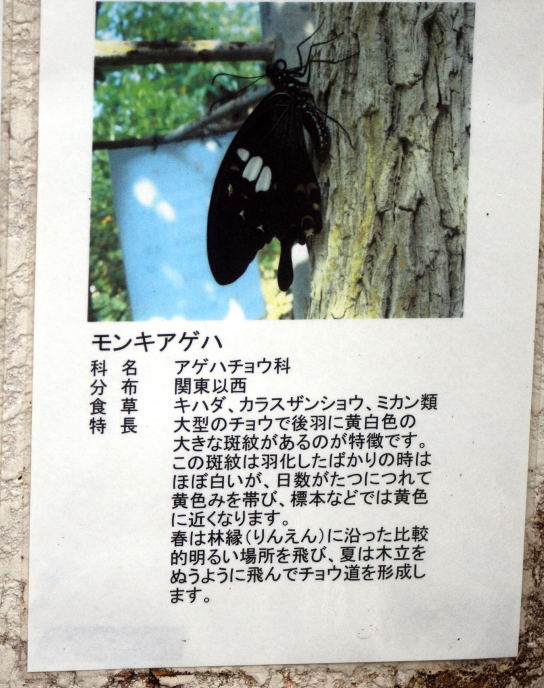 モンキアゲハ
科 名 アゲハチョウ科
分 布 関東以西
食 草 キハダ、カラスザンショウ、ミカン類
特 長 大型のチョウで後羽に黄白色の
大きな斑紋があるのが特徴です。
この斑紋は羽化したばかりの時は
ほぼ白いが、日数がたつにつれて
黄色みを帯び、標本などでは黄色
に近くなります。
春は林縁(りんえん)に沿った比較
的明るい場所を飛び、夏は木立を
ぬうように飛んでチョウ道を形成し
ます。